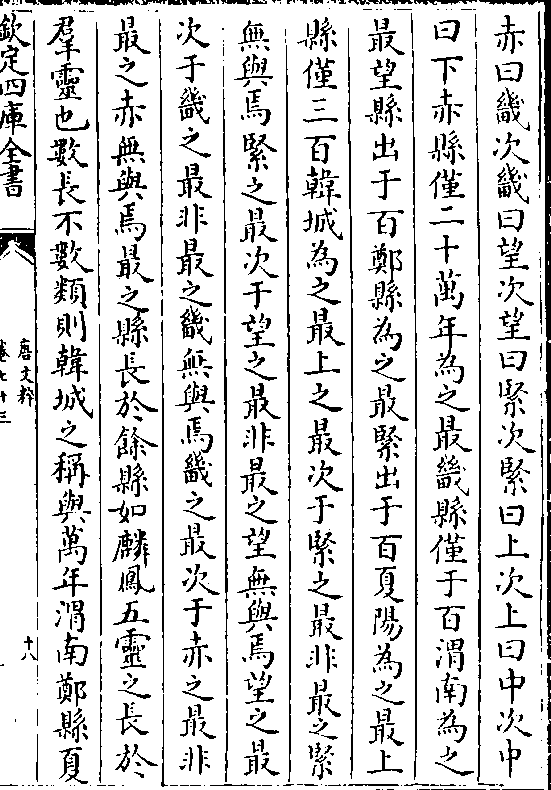 赤曰畿次畿曰望次望曰緊次緊曰上次上曰中次中
曰下赤縣僅二十萬年為之最畿縣僅于百渭南為之
最望縣出于百鄭縣為之最緊出于百夏陽為之最上
縣僅三百韓城為之最上之最次于緊之最非最之緊
無與焉緊之最次于望之最非最之望無與焉望之最
次于畿之最非最之畿無與焉畿之最次于赤之最非
最之赤無與焉最之縣長於餘縣如麟鳳五靈之長於
羣靈也數長不數類則韓城之稱與萬年渭南鄭縣夏
欽定四庫全書
唐文粹
卷七十三
十八